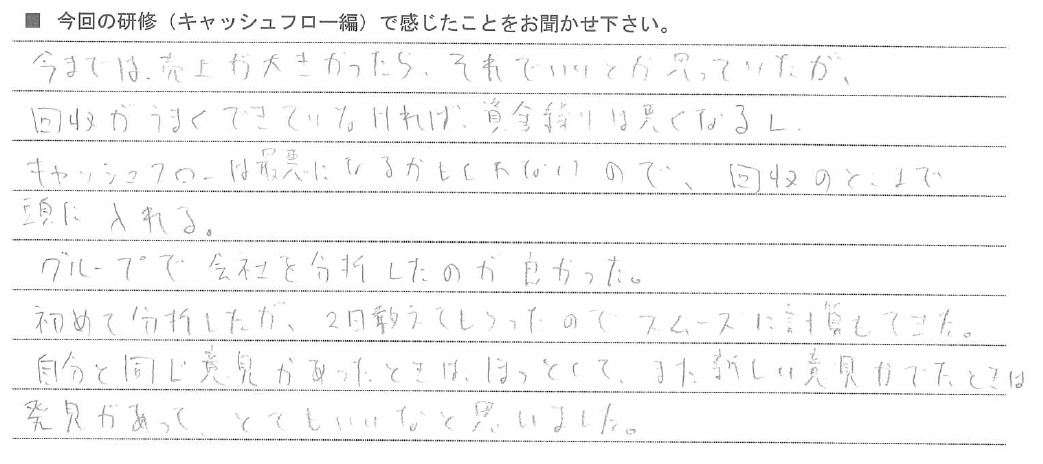 ■ 今回の研修（キャッシュフロー編）で感じたことをお聞かせ下さい。
今までは、売上が大きかったら、それでいいとか思っていたが、
回収がうまくできていなければ、資金繰りは悪くなるし、
キャッシュフローは最悪になるかもしれないので、回収のとこまで
頭に入れる。
グループで会社を分析したのが良かった。
初めて分析したが、2日教えてもらったのでスムースに計算もできた。
自分と同じ意見があったときは、ほっとして、また新しい意見がでたときは
発見があって、とてもいいなと思いました。